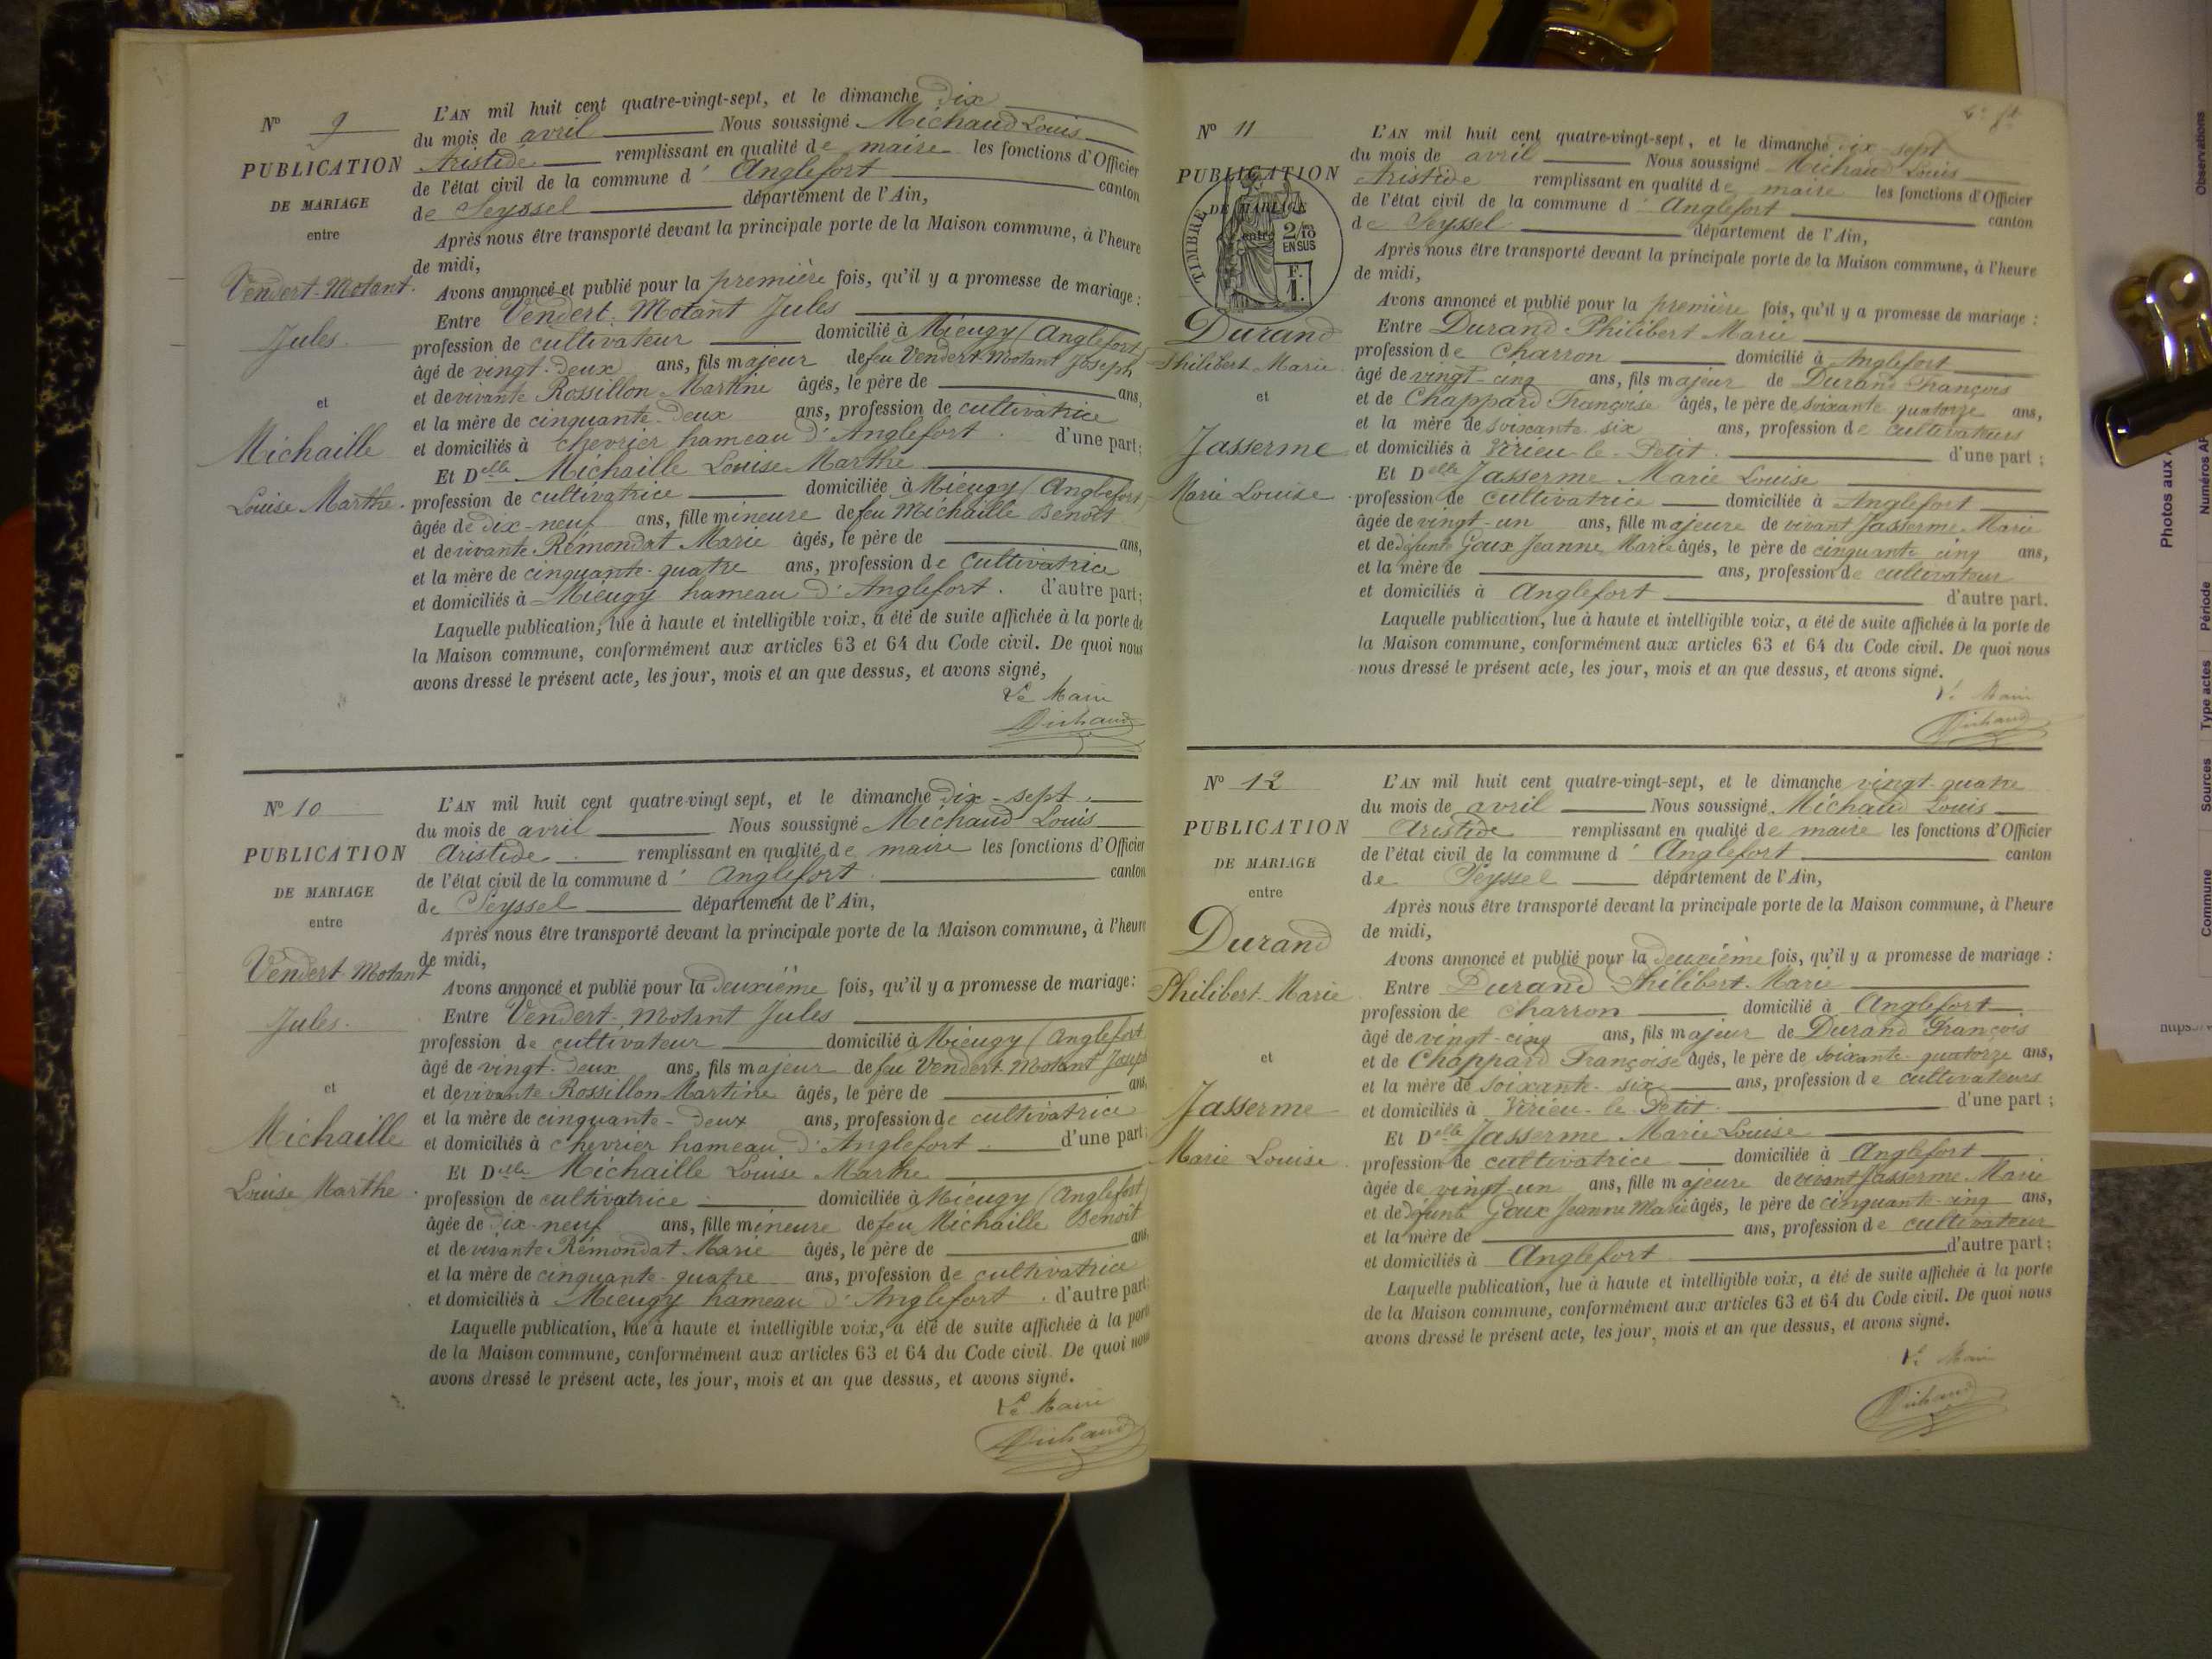 N° 9
PUBLICATION
DE MARIAGE
entre
Vendert-Motant
Jules
et
Michaille
Louise Marthe.
L'AN mil huit cent quatre-vingt-sept, et le dimanche dix
du mois de avril Nous soussigné Michaud Louis
Aristide remplissant en qualité de maire les fonctions d'Officier
de l'état civil de la commune d' Anglefort canton
de Seyssel département de l'Ain,
Après nous être transporté devant la principale porte de la Maison commune, à l'heure
de midi,
Avons annoncé et publié pour la première fois, qu'il y a promesse de mariage :
Entre Vendert-Motant Jules
profession de cultivateur domicilié à Mieugy (Anglefort
âgé de vingt-deux ans, fils majeur de feu Vendert-Motant Joseph
et de vivante Rossillon Martine âgés, le père de ans,
et la mère de cinquante-deux ans, profession de cultivatrice
et domiciliés à Chevrier hameau d'Anglefort. d'une part;
Et Delle Michaille Louise Marthe
profession de cultivatrice domiciliée à Mieugy (Anglefort
âgée de dix-neuf ans, fille mineure de feu Michaille Benoît
et de vivante Rémondat Marie âgés, le père de ans,
et la mère de cinquante-quatre ans, profession de cultivatrice
et domiciliés à Mieugy hameau d'Anglefort. d'autre part;
Laquelle publication, lue à haute et intelligible voix, a été de suite affichée à la porte de
la Maison commune, conformément aux articles 63 et 64 du Code civil. De quoi nous
avons dressé le présent acte, les jour, mois et an que dessus, et avons signé,
Le Maire
Michaud
N° 10
PUBLICATION
DE MARIAGE
entre
Vendert-Motant
Jules.
et
Michaille
Louise Marthe.
L'AN mil huit cent quatre-vingt sept, et le dimanche dix-sept
du mois de avril Nous soussigné Michaud Louis
Aristide remplissant en qualité de maire les fonctions d'Officier
de l'état civil de la commune d' Anglefort canton
de Seyssel département de l'Ain,
Après nous être transporté devant la principale porte de la Maison commune, à l'heure
de midi,
Avons annoncé et publié pour la deuxième fois, qu'il y a promesse de mariage:
Entre Vendert-Motant Jules
profession de cultivateur domicilié à Mieugy (Anglefort
âgé de vingt-deux ans, fils majeur de feu Vendert-Motant Joseph
et de vivante Rossillon Martine âgés, le père de ans,
et la mère de cinquante-deux ans, profession de cultivatrice
et domiciliés à Chevrier hameau d'Anglefort d'une part;
Et Delle Michaille Louise Marthe
profession de cultivatrice domiciliée à Mieugy (Anglefort
âgée de dix-neuf ans, fille mineure de feu Michaille Benoît
et de vivante Rémondat Marie âgés, le père de ans,
et la mère de cinquante-quatre ans, profession de cultivatrice
et domiciliés à Mieugy hameau d'Anglefort. d'autre part;
Laquelle publication, lue à haute et intelligible voix, a été de suite affichée à la porte
de la Maison commune, conformément aux articles 63 et 64 du Code civil. De quoi nous
avons dressé le présent acte, les jour, mois et an que dessus, et avons signé.
Le Maire
Michaud
N° 11
PUBLICATION
DE MARIAGE
entre
TIMBRE
2/10
EN SUS
F.
1.
Durand
Philibert Marie
et
Jasserme
Marie Louise
L'AN mil huit cent quatre-vingt-sept, et le dimanche dix-sept
du mois de avril Nous soussigné Michaud Louis
Aristide remplissant en qualité de maire les fonctions d'Officier
de l'état civil de la commune d' Anglefort canton
de Seyssel département de l'Ain,
Après nous être transporté devant la principale porte de la Maison commune, à l'heure
de midi,
Avons annoncé et publié pour la première fois, qu'il y a promesse de mariage :
Entre Durand Philibert Marie
profession de charron domicilié à Anglefort
âgé de vingt-cinq ans, fils majeur de Durand François
et de Chappard Françoise âgés, le père de soixante quatorze ans,
et la mère de soixante-six ans, profession de cultivateurs
et domiciliés à Virieu-le-Petit. d'une part ;
Et Delle Jasserme Marie Louise
profession de cultivatrice domiciliée à Anglefort
âgée de vingt-un ans, fille majeure de vivant Jasserme Marie
et de défunte Goux Jeanne Marie âgés, le père de cinquante cinq ans,
et la mère de ans, profession de cultivateur
et domiciliés à Anglefort d'autre part.
Laquelle publication, lue à haute et intelligible voix, a été de suite affichée à la porte de
la Maison commune, conformément aux articles 63 et 64 du Code civil. De quoi nous
nous dressé le présent acte, les jour, mois et an que dessus, et avons signé.
Le Maire
Michaud
N° 12
PUBLICATION
DE MARIAGE
entre
Durand
Philibert-Marie
et
Jasserme
Marie Louise.
L'AN mil huit cent quatre-vingt-sept, et le dimanche vingt-quatre
du mois de avril Nous soussigné Michaud Louis
Aristide remplissant en qualité de maire les fonctions d'Officier
de l'état civil de la commune d' Anglefort canton
de Seyssel département de l'Ain,
Après nous être transporté devant la principale porte de la Maison commune, à l'heure
de midi,
Avons annoncé et publié pour la deuxième fois, qu'il y a promesse de mariage :
Entre Durand Philibert-Marie
profession de charron domicilié à Anglefort
âgé de vingt-cinq ans, fils majeur de Durand François
et de Chappard Françoise âgés, le père de soixante-quatorze ans,
et la mère de soixante-six ans, profession de cultivateurs
et domiciliés à Virieu-le-Petit. d'une part ;
Et Delle Jasserme Marie Louise
profession de cultivatrice domiciliée à Anglefort
âgée de vingt-un ans, fille majeure de vivant Jasserme Marie
et de défunte Goux Jeanne Marie âgés, le père de cinquante-cinq ans,
et la mère de ans, profession de cultivateur
et domiciliés à Anglefort d'autre part ;
Laquelle publication, lue à haute et intelligible voix, a été de suite affichée à la porte
de la Maison commune, conformément aux articles 63 et 64 du Code civil. De quoi nous
avons dressé le présent acte, les jour, mois et an que dessus, et avons signé.
Le Maire
Michaud
Commune Sources Type actes Période Numéros Observations
Photos aux